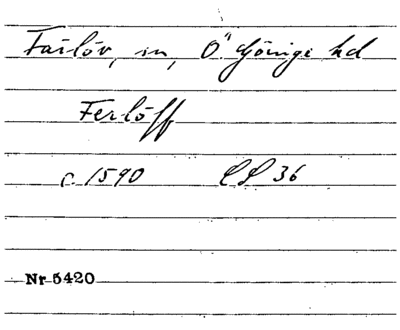 Färlöv, sn, Ö Göinge hd
Ferlöff
c. 1590 LL 36
Nr 5420